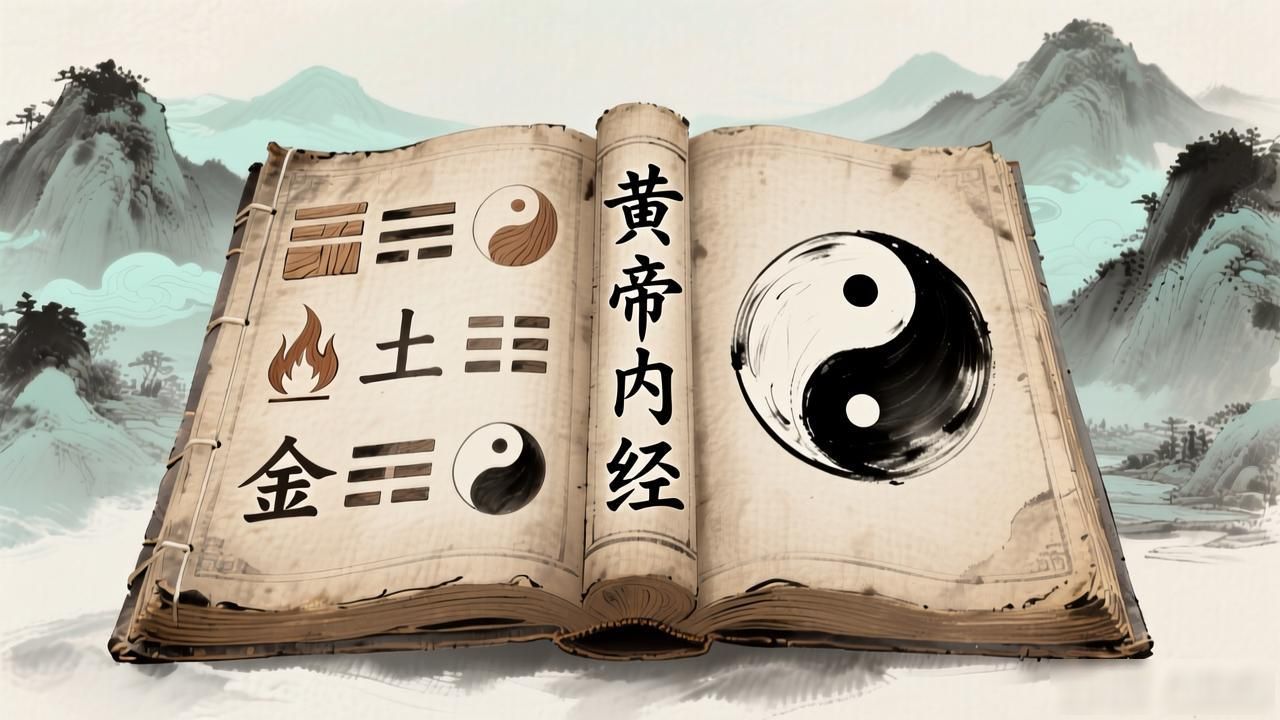 土
金
黄帝内经